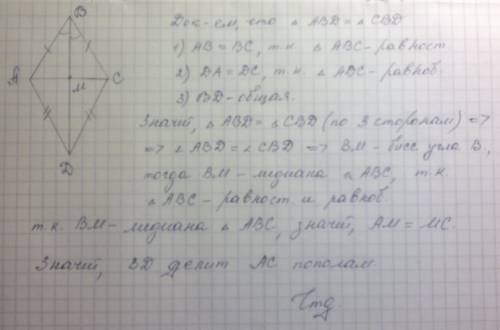 B
A
C
M
D
Док-ем, что △ ABD = △ CBD
1) AB = BC, т.к. △ ABC - равност
2) DA = DC, т.к. △ ADC - равноб.
3) BD - общая.
Значит, △ ABD = △ CBD (по 3 сторонам) =>
=> ∠ ABD = ∠ CBD => BM - бисс угла B,
тогда BM - медиана △ ABC, т.к.
△ ABC - равност. и равноб.
т.к. BM - медиана △ ABC, значит, AM = MC.
Значит, BD делит AC пополам.
Чтд